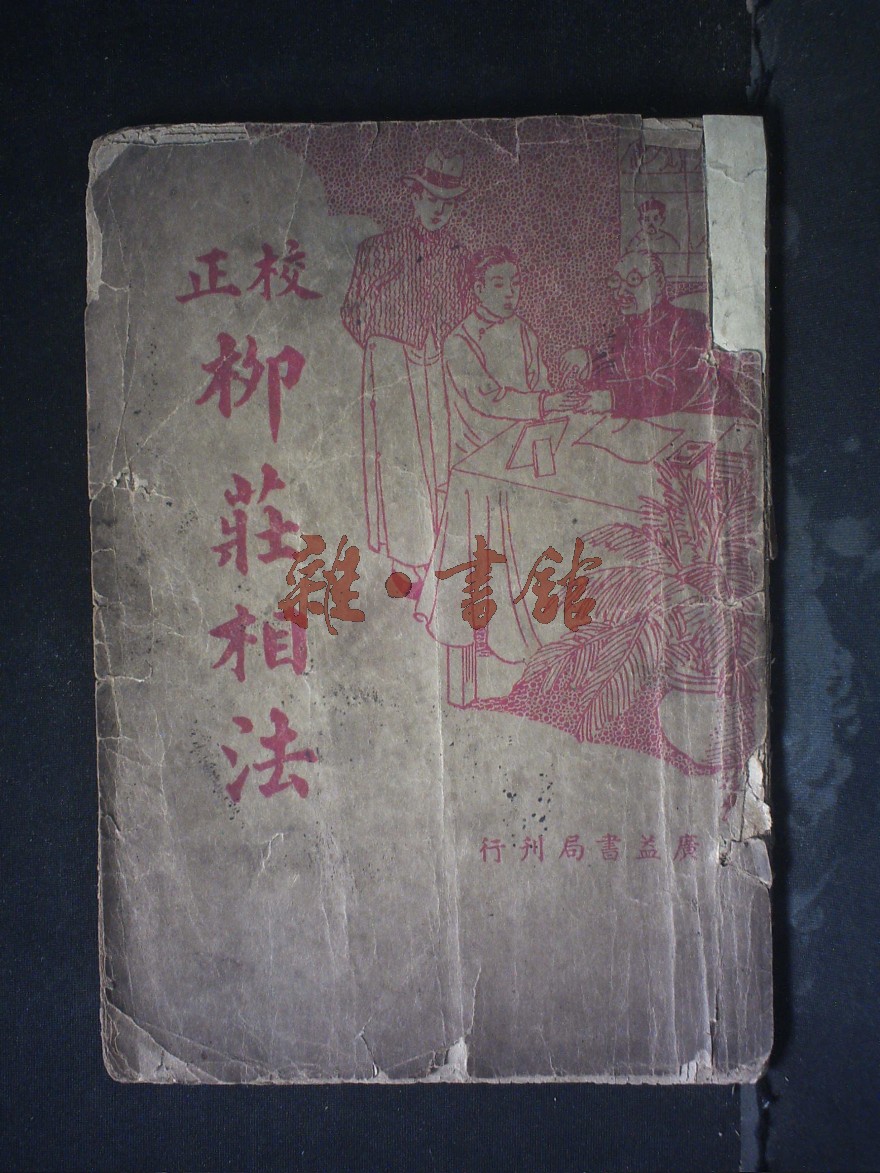 校正
柳莊相法
廣益書局刊行
雜·書館